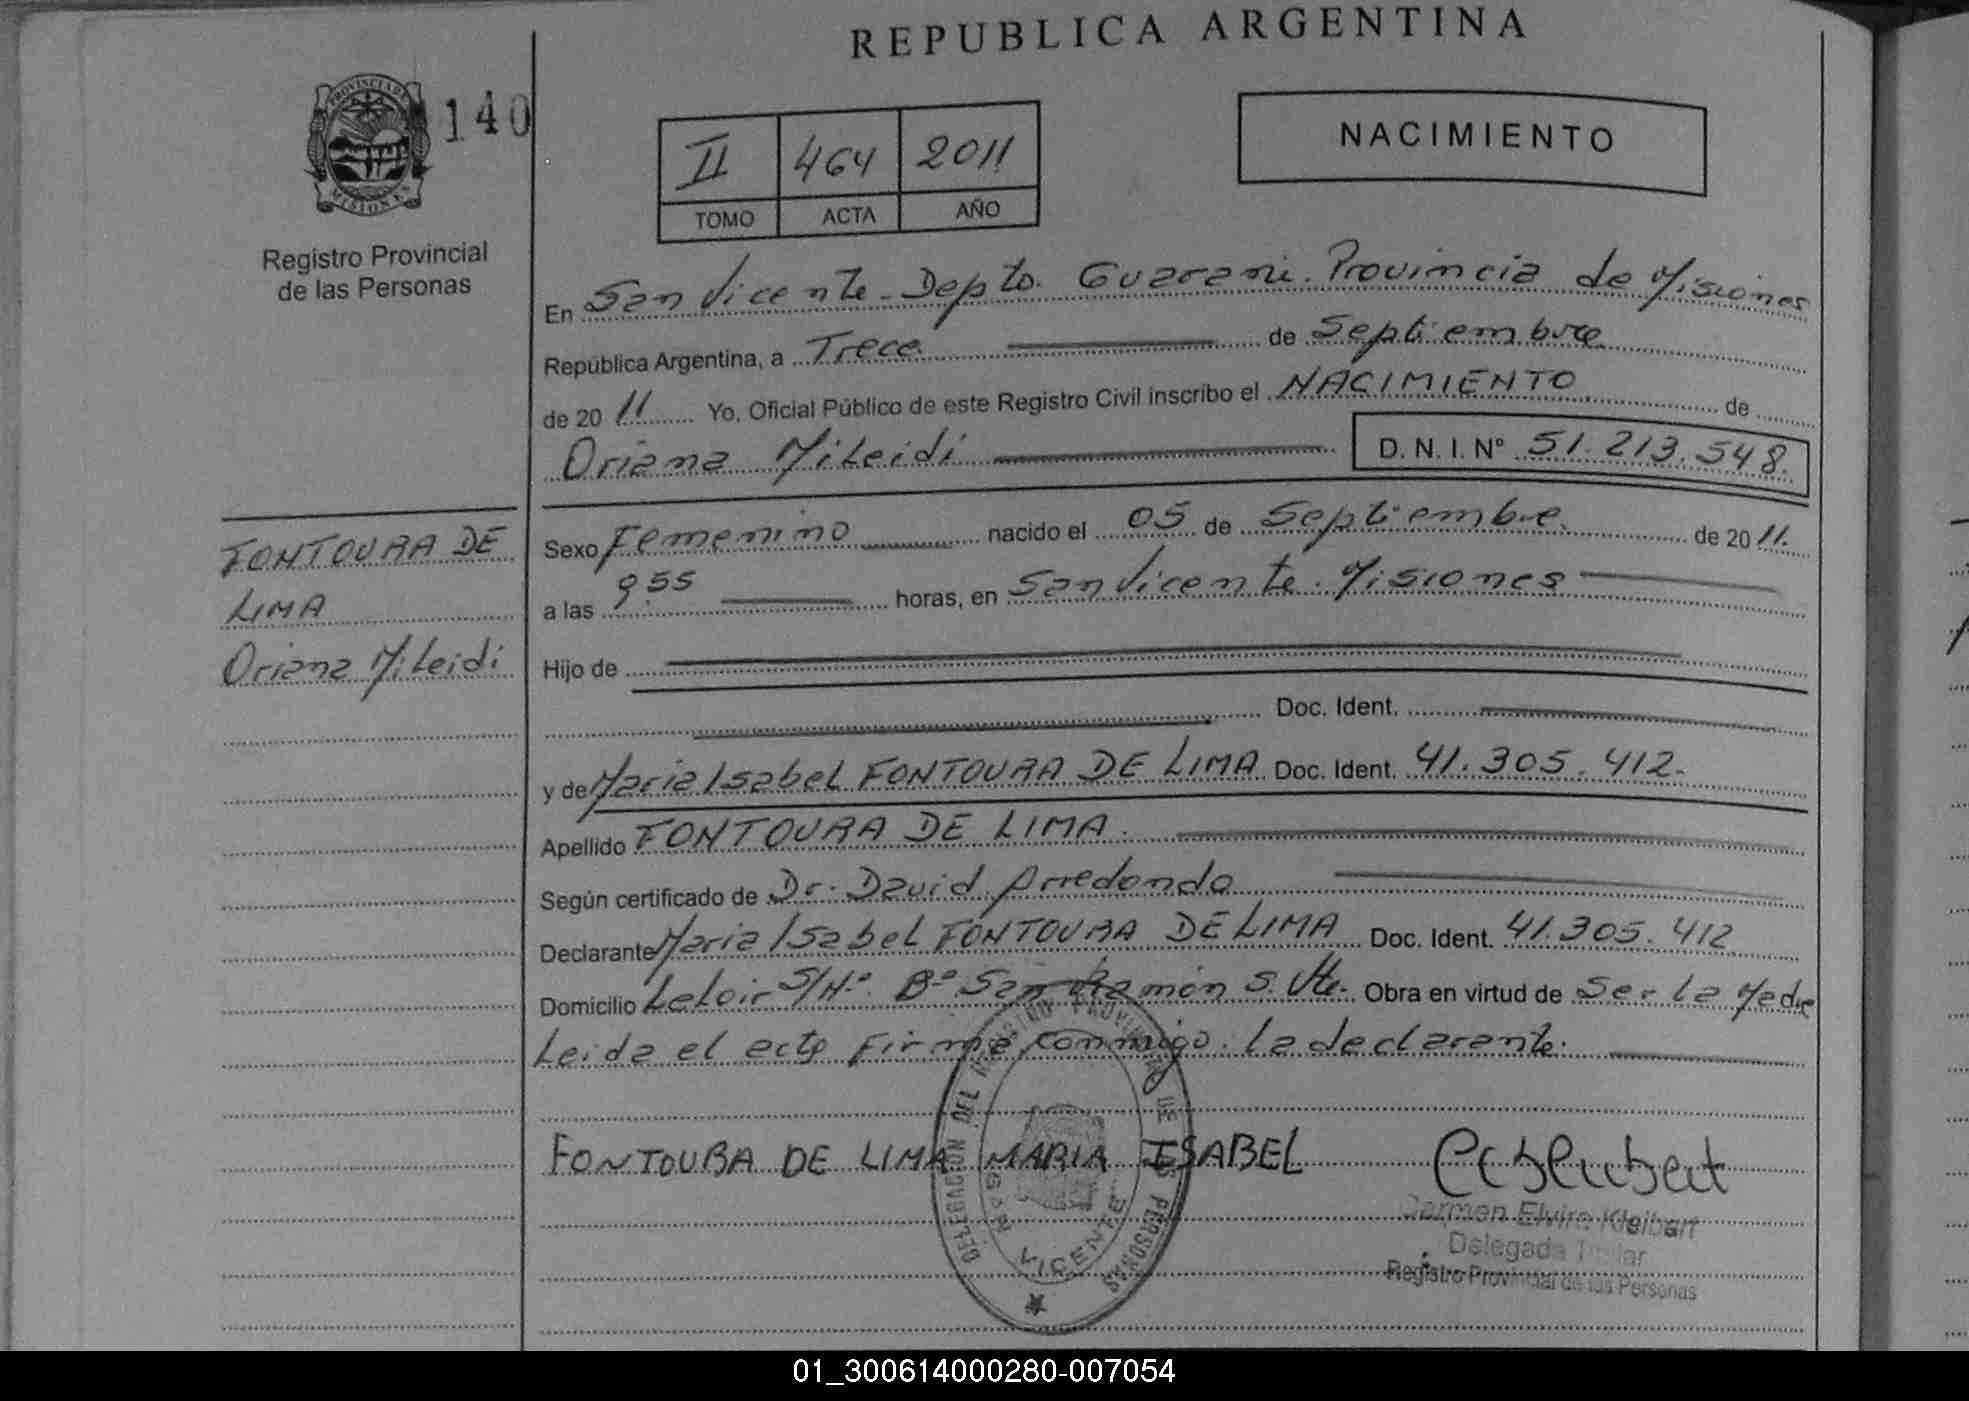 REPUBLICA ARGENTINA
PROVINCIA DE
MISIONES
140
Registro Provincial
de las Personas
II 464 2011
TOMO ACTA AÑO
NACIMIENTO
En San Vicente - Depto. Guarani. Provincia de Misiones
República Argentina, a Trece de Septiembre
de 20 11 Yo, Oficial Público de este Registro Civil inscribo el NACIMIENTO de
Oriana Mileidi D. N. I. Nº 51.213.548.
FONTOURA DE
LIMA
Oriana Mileidi
Sexo Femenino nacido el 05 de Septiembre de 20 11.
a las 9.55 horas, en San Vicente. Misiones
Hijo de
Doc. Ident.
y de Maria Isabel FONTOURA DE LIMA Doc. Ident. 41.305.412.
Apellido FONTOURA DE LIMA.
Según certificado de Dr. David Arredondo
Declarante Maria Isabel FONTOURA DE LIMA Doc. Ident. 41.305.412
Domicilio Leloir S/Nº. Bº San Ramón S. Vte. Obra en virtud de Ser la Madre
Leida el acta firma conmigo la declarante.
FONTOURA DE LIMA MARIA ISABEL
DELEGACION DEL REGISTRO PROVINCIAL DE LAS PERSONAS
SAN VICENTE
Carmen Elvira Kleibart
Delegada Titular
Registro Provincial de las Personas
01_300614000280-007054